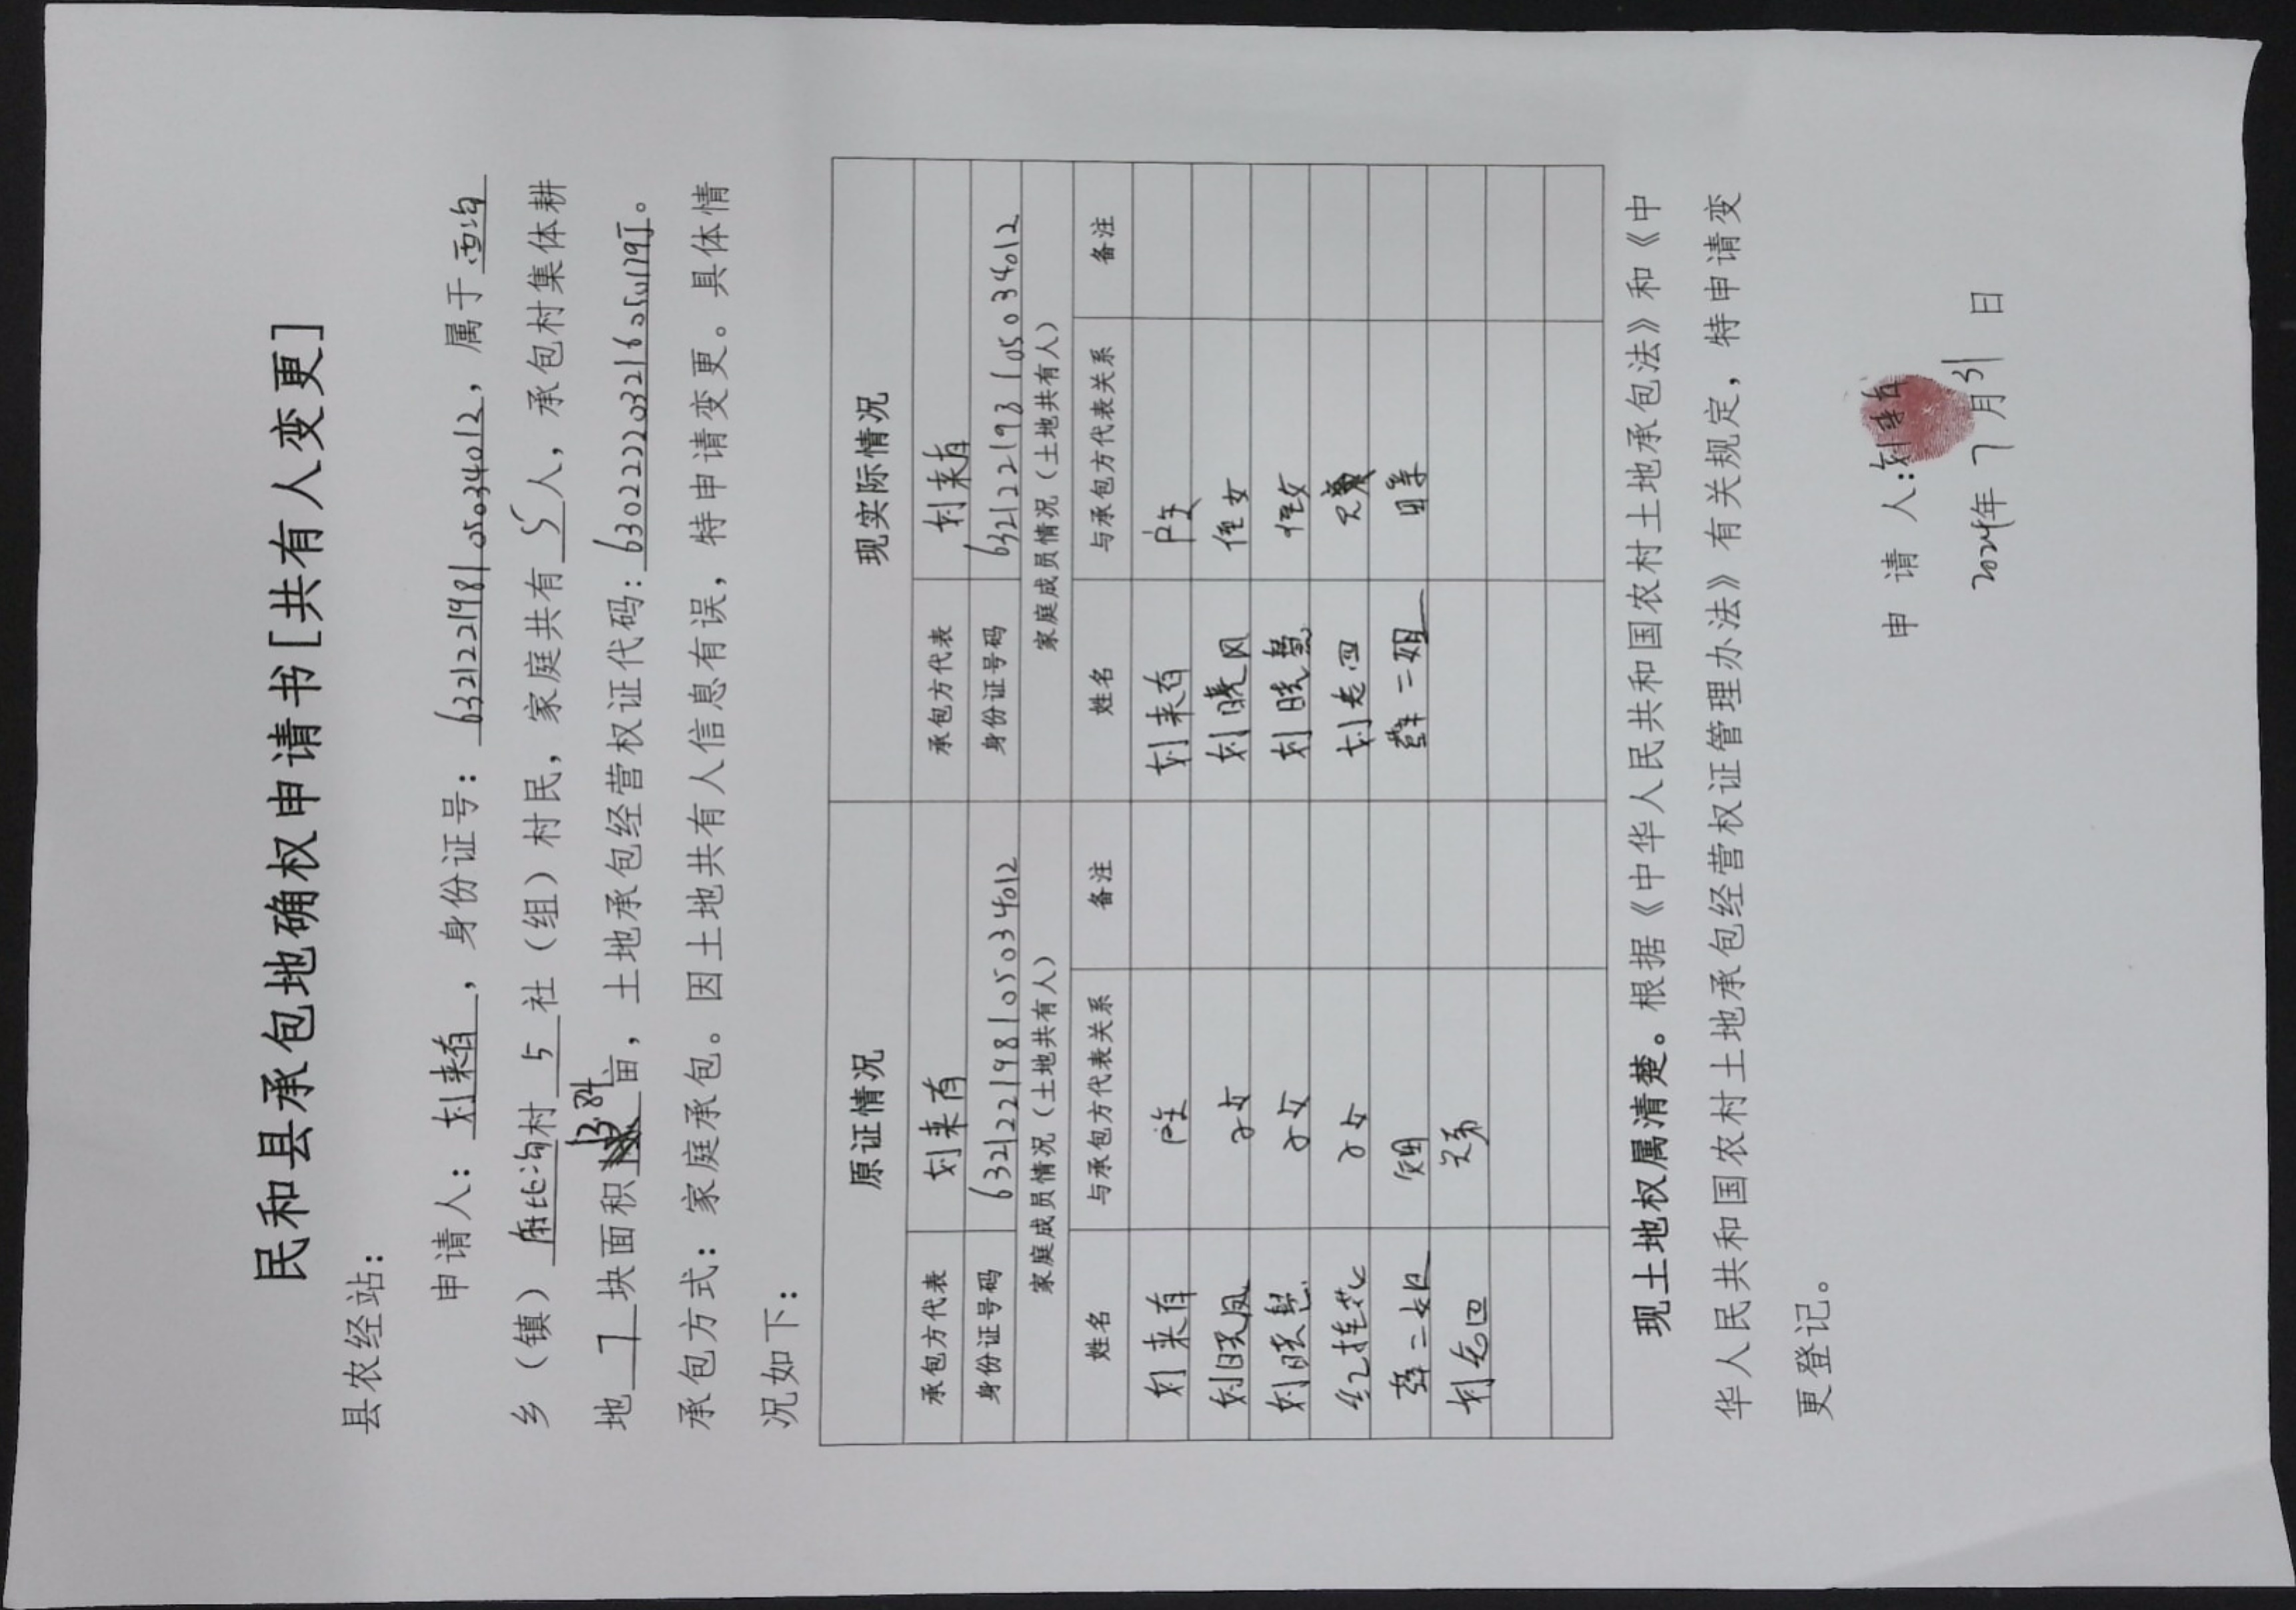 民和县承包地确权申请书[共有人变更]
县农经站：
申请人：刘来有，身份证号：632122198105034012，属于西沟
乡（镇）麻比沟村 5 社（组）村民，家庭共有 5 人，承包村集体耕
地 7 块面积 13.84 亩，土地承包经营权证代码：
承包方式：家庭承包。因土地共有人信息有误，特申请变更。具体情
况如下：
原证情况 现实际情况
承包方代表 刘来有 承包方代表 刘来有
身份证号码 632122198105034012 身份证号码 632122198105034012
家庭成员情况（土地共有人） 家庭成员情况（土地共有人）
姓名 与承包方代表关系 备注 姓名 与承包方代表关系 备注
刘来有 户主 刘来有 户主
刘晓凤 子女 刘晓凤 侄女
刘晓慧 子女 刘晓慧 侄女
子女 刘老四 兄弟
薛二姐 薛二姐 母亲
刘老四 兄弟
现土地权属清楚。根据《中华人民共和国农村土地承包法》和《中
华人民共和国农村土地承包经营权证管理办法》有关规定，特申请变
更登记。
申 请 人：刘来有
2024年 7 月 31 日